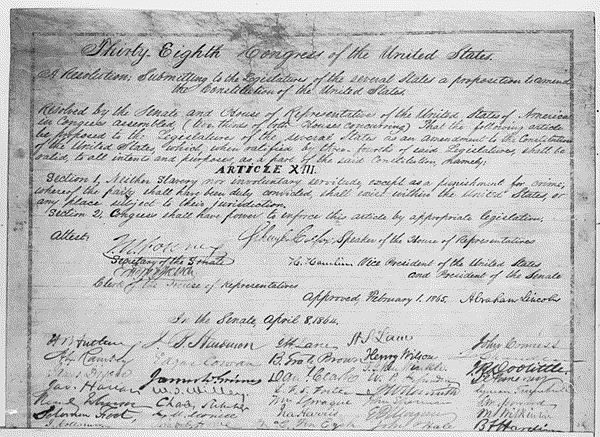 Thirty-Eighth Congress of the United States.
A Resolution; Submitting to the Legislatures of the several States a proposition to amend
the Constitution of the United States.
Resolved by the Senate and House of Representatives of the United States of America
in Congress assembled, (two thirds of both Houses concurring) That the following article
be proposed to the Legislatures of the several States as an amendment to the Constitution
of the United States, which, when ratified by three-fourths of said Legislatures, shall be
valid, to all intents and purposes, as a part of the said Constitution, namely:
ARTICLE XIII.
Section 1, Neither slavery nor involuntary servitude, except as a punishment for crime,
whereof the party shall have been duly convicted, shall exist within the United States, or
any place subject to their jurisdiction.
Section 2; Congress shall have power to enforce this article by appropriate legislation.
Attest:
J.W. Forney
Secretary of the Senate
Schuyler Colfax Speaker of the House of Representatives
H. Hamlin Vice President of the United States
and President of the Senate
Clerk of the House of Representatives
Approved, February 1. 1865. Abraham Lincoln
In the Senate, April 8, 1864.
H S Lane
John Conness
Edgar Cowan
B. Gratz Brown
Henry Wilson
J R Doolittle
James Harlan
James W Grimes
Dan. Clark
Solomon Foot
Ira Harris
John P Hale